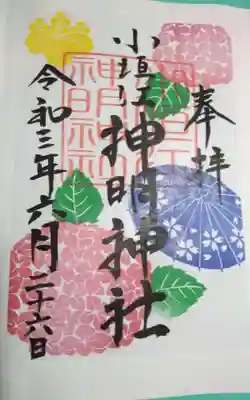 奉拝
小垣江神明神社
令和三年六月二十六日